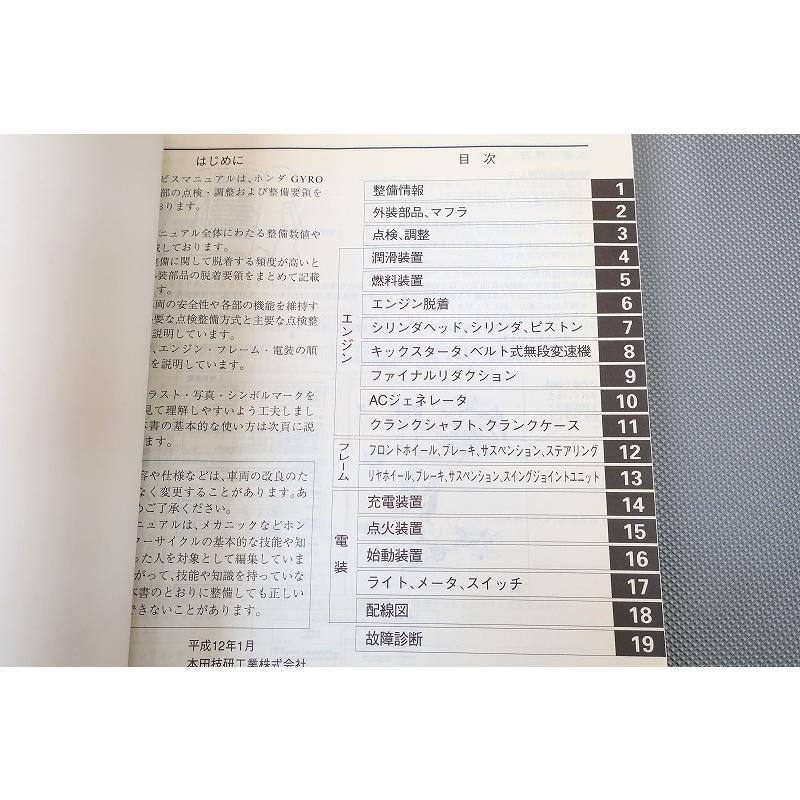 はじめに
ビスマニュアルは、ホンダ GYRO
部の点検・調整および整備要領を
おります。
ニュアル全体にわたる整備数値や
載しております。
整備に関して脱着する頻度が高いと
外装部品の脱着要領をまとめて記載
す。
車両の安全性や各部の機能を維持す
要な点検整備方式と主要な点検整
説明しています。
、エンジン・フレーム・電装の順
を説明しています。
ラスト・写真・シンボルマークを
見て理解しやすいよう工夫しまし
本書の基本的な使い方は次頁に説
ます。
容や仕様などは、車両の改良のた
なく変更することがあります。あ
めご了承ください。
ニュアルは、メカニックなどホン
ターサイクルの基本的な技能や知
った人を対象として編集していま
がって、技能や知識を持っていな
本書のとおりに整備しても正しい
できないことがあります。
平成12年1月
本田技研工業株式会社
目 次
整備情報 1
外装部品、マフラ 2
点検、調整 3
エンジン
潤滑装置 4
燃料装置 5
エンジン脱着 6
シリンダヘッド、シリンダ、ピストン 7
キックスタータ、ベルト式無段変速機 8
ファイナルリダクション 9
ACジェネレータ 10
クランクシャフト、クランクケース 11
フレーム
フロントホイール、ブレーキ、サスペンション、ステアリング 12
リヤホイール、ブレーキ、サスペンション、スイングジョイントユニット 13
電装
充電装置 14
点火装置 15
始動装置 16
ライト、メータ、スイッチ 17
配線図 18
故障診断 19